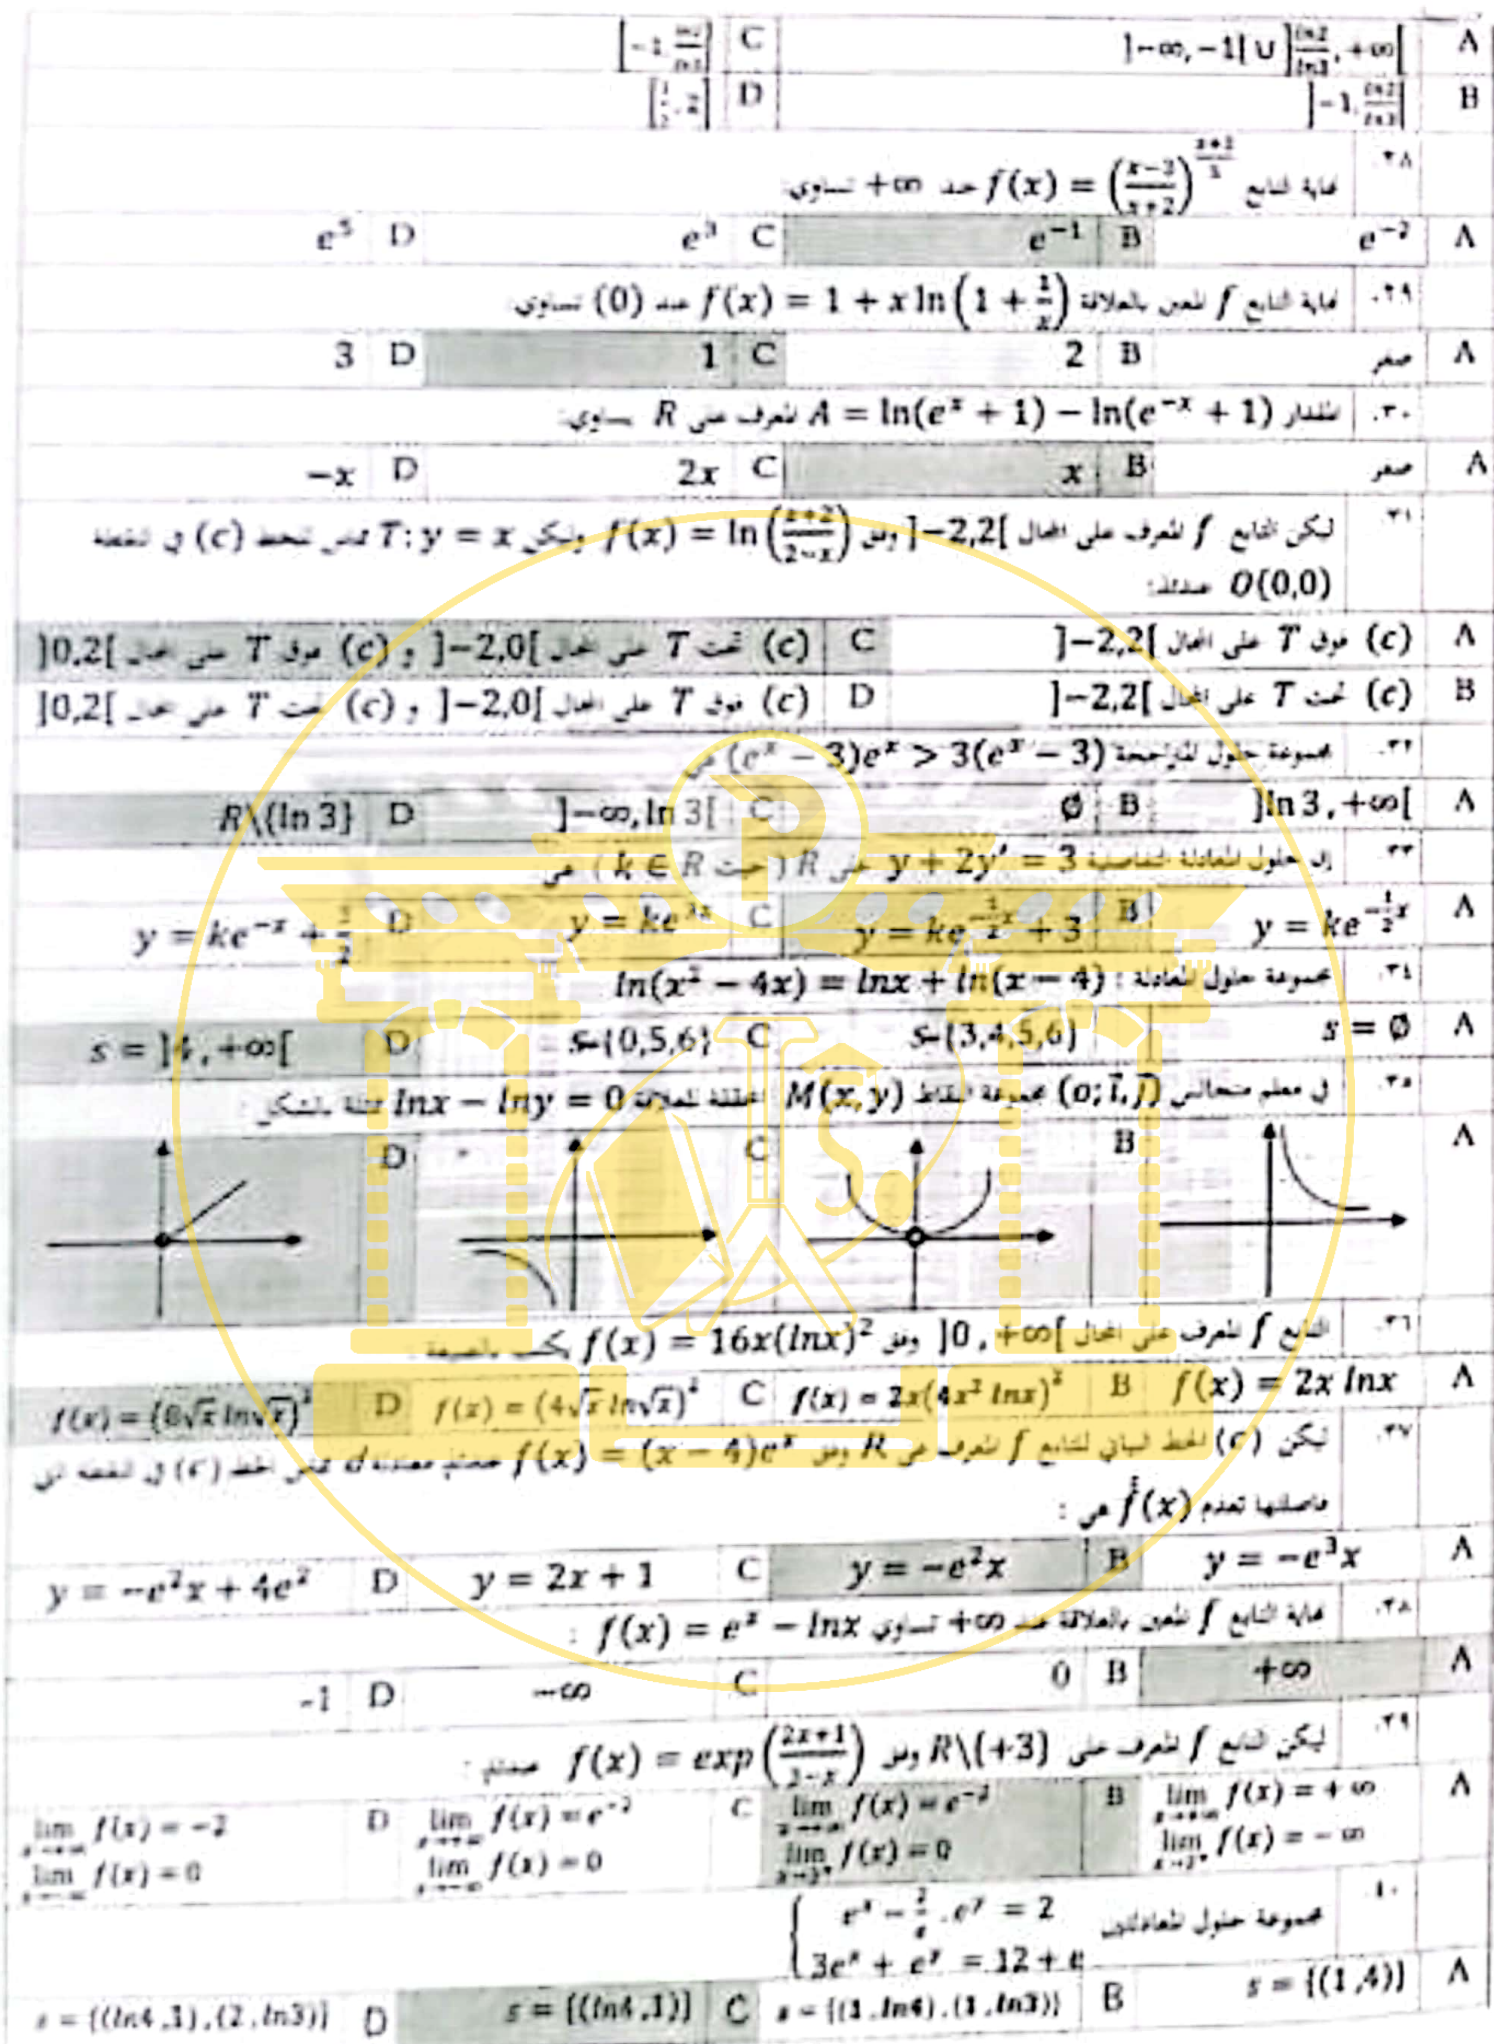 A ]−∞, −1[ ∪ ]ln2/ln3, +∞[ C [−1, ln2/ln3]
B ]−1, ln2/ln3[ D
٢٨. نهاية التابع f(x) = ((x−3)/(x+2))^((x+2)/5) عند +∞ تساوي:
A e⁻² B e⁻¹ C e³ D e⁵
٢٩. نهاية التابع f المعين بالعلاقة f(x) = 1 + x ln(1 + 1/x) عند (0) تساوي:
A صفر B 2 C 1 D 3
٣٠. المقدار A = ln(eˣ + 1) − ln(e⁻ˣ + 1) المعرف على R يساوي:
A صفر B x C 2x D −x
٣١. ليكن التابع f المعرف على المجال ]−2,2[ وفق f(x) = ln((x+2)/(2−x)) وليكن T: y = x مماس للخط (c) في النقطة
O(0,0) عندئذ:
A (c) فوق T على المجال ]−2,2[ C (c) تحت T على المجال ]−2,0[ و (c) فوق T على المجال ]0,2[
B (c) تحت T على المجال ]−2,2[ D (c) فوق T على المجال ]−2,0[ و (c) تحت T على المجال ]0,2[
٣٢. مجموعة حلول المتراجحة (eˣ − 3)eˣ > 3(eˣ − 3) هي
A ]ln 3, +∞[ B ∅ C ]−∞, ln 3[ D R\{ln 3}
٣٣. إن حلول المعادلة التفاضلية y + 2y′ = 3 على R (حيث k ∈ R) هي
A y = ke^(−½x) B y = ke^(−½x) + 3 C y = ke^(3x) D y = ke⁻ˣ + 3/2
٣٤. مجموعة حلول المعادلة : ln(x² − 4x) = lnx + ln(x − 4)
A s = ∅ S={3,4,5,6} C S={0,5,6} D s = ]4, +∞[
٣٥. في معلم متجانس (o; i⃗, j⃗) مجموعة النقاط M(x, y) المحققة للعلاقة lnx − lny = 0 ممثلة بالشكل :
A B C D
٣٦. التابع f المعرف على المجال ]0, +∞[ وفق f(x) = 16x(lnx)² يكتب بالصيغة
A f(x) = 2x lnx B f(x) = 2x(4x² lnx)² C f(x) = (4√x ln√x)² D f(x) = (8√x ln√x)²
٣٧. ليكن (c) الخط البياني للتابع f المعرف على R وفق f(x) = (x − 4)eˣ عندئذ معادلة d مماس الخط (c) في النقطة التي
فاصلتها تعدم f̋(x) هي :
A y = −e³x B y = −e²x C y = 2x + 1 D y = −e²x + 4e²
٣٨. نهاية التابع f المعين بالعلاقة عند +∞ تساوي f(x) = eˣ − lnx :
A +∞ B 0 C −∞ D -1
٣٩. ليكن التابع f المعرف على R\{+3} وفق f(x) = exp((2x+1)/(3−x)) عندئذ :
A lim f(x) = +∞ B lim f(x) = e⁻² C lim f(x) = e⁻² D lim f(x) = −2
lim f(x) = −∞ lim f(x) = 0 lim f(x) = 0 lim f(x) = 0
٤٠. مجموعة حلول المعادلتين { eˣ − (2/e).eʸ = 2
3eˣ + eʸ = 12 + e
A s = {(1,4)} B s = {(1,ln4),(1,ln3)} C s = {(ln4,1)} D s = {(ln4,1),(2,ln3)}